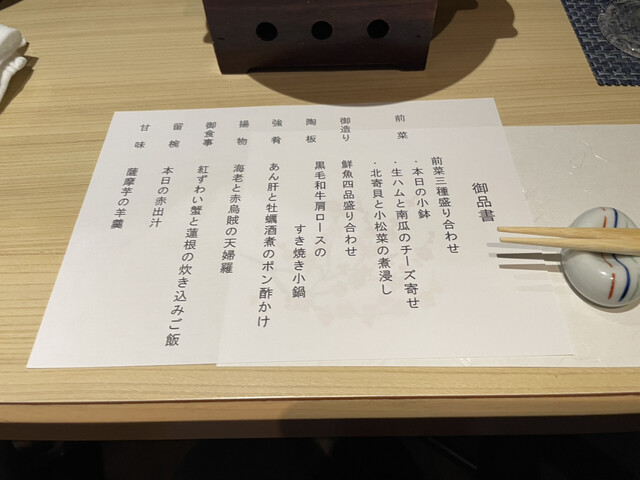 御品書
前菜
前菜三種盛り合わせ
・本日の小鉢
・生ハムと南瓜のチーズ寄せ
・北寄貝と小松菜の煮浸し
御造り
鮮魚四品盛り合わせ
陶板
黒毛和牛肩ロースの
すき焼き小鍋
強肴
あん肝と牡蠣酒煮のポン酢かけ
揚物
海老と赤烏賊の天婦羅
御食事
紅ずわい蟹と蓮根の炊き込みご飯
留椀
本日の赤出汁
甘味
薩摩芋の羊羹